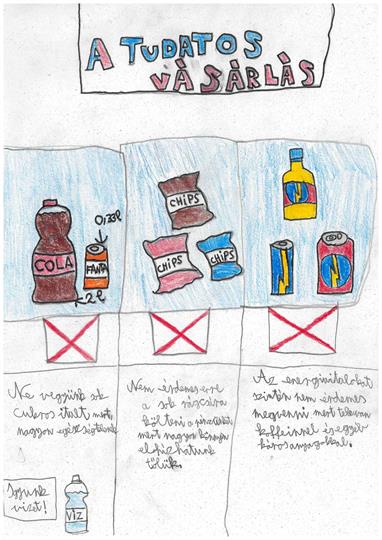 A TUDATOS
VÀSÀRLÀS
COLA
0,33l
FANTA
2l
CHiPS
CHiPS
CHiPS
Ne vegyünk sok
cukros italt mert
nagyon egészségtelenek
Nem érdemes erre
a sok rágcsára
költeni a pénzünket
mert nagyon könnyen
elhízhatunk
tőlük.
Az energiaitalokat
szintén nem érdemes
megvenni mert tele van
koffeinnel és egyéb
káros anyagokkal.
Igyunk
vizet!
VÍZ